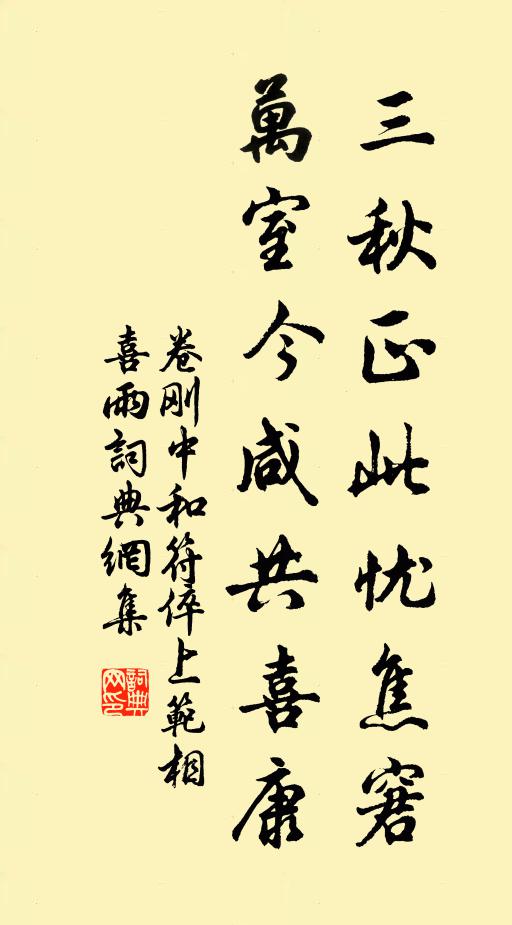 三秋正此忧焦窘
萬室今咸共喜康
卷刚中和符倅上範相
喜雨詞典網集
詞典网印